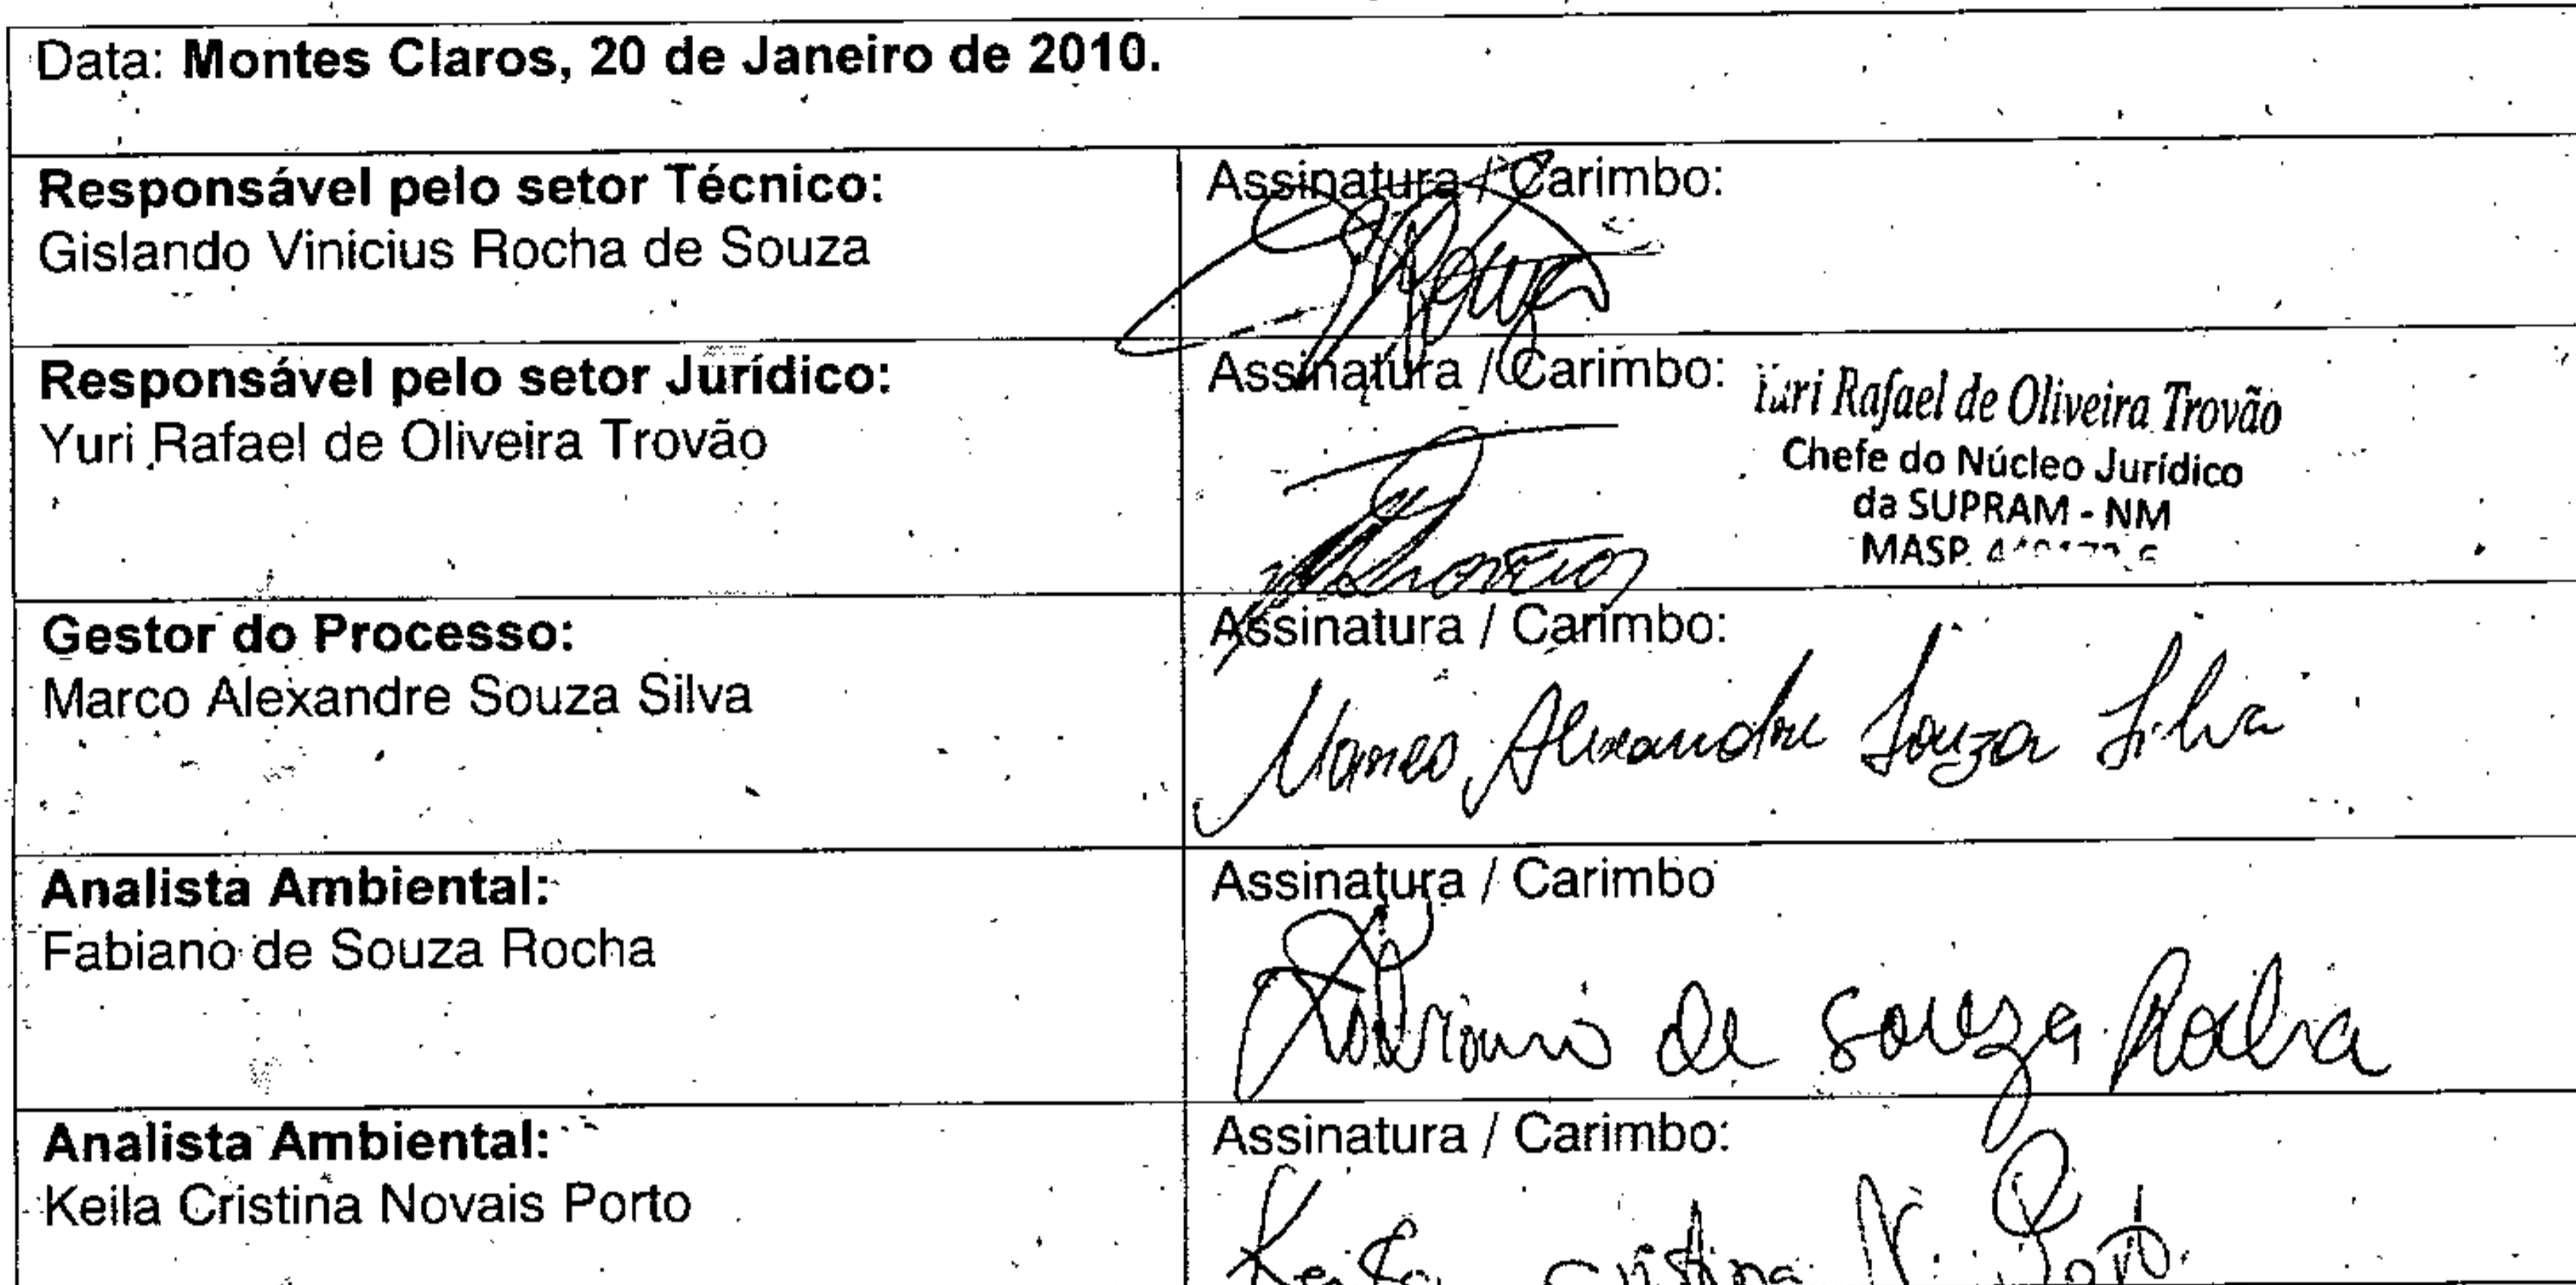 Data: Montes Claros, 20 de Janeiro de 2010.
Responsável pelo setor Técnico:
Gislando Vinicius Rocha de Souza
Assinatura / Carimbo:
Responsável pelo setor Jurídico:
Yuri Rafael de Oliveira Trovão
Assinatura / Carimbo:
Yuri Rafael de Oliveira Trovão
Chefe do Núcleo Jurídico
da SUPRAM - NM
MASP.
Gestor do Processo:
Marco Alexandre Souza Silva
Assinatura / Carimbo:
Marco Alexandre Souza Silva
Analista Ambiental:
Fabiano de Souza Rocha
Assinatura / Carimbo
Fabiano de Souza Rocha
Analista Ambiental:
Keila Cristina Novais Porto
Assinatura / Carimbo:
Keila Cristina N. Porto